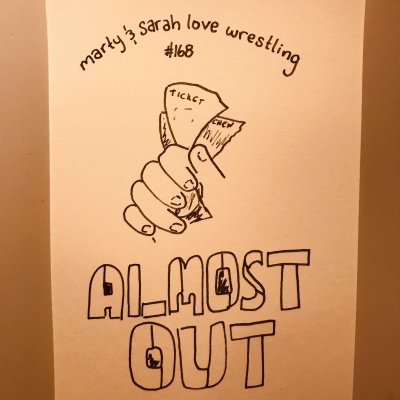 marty & sarah love wrestling
#168
TICKET
CHEW
ALMOST
OUT